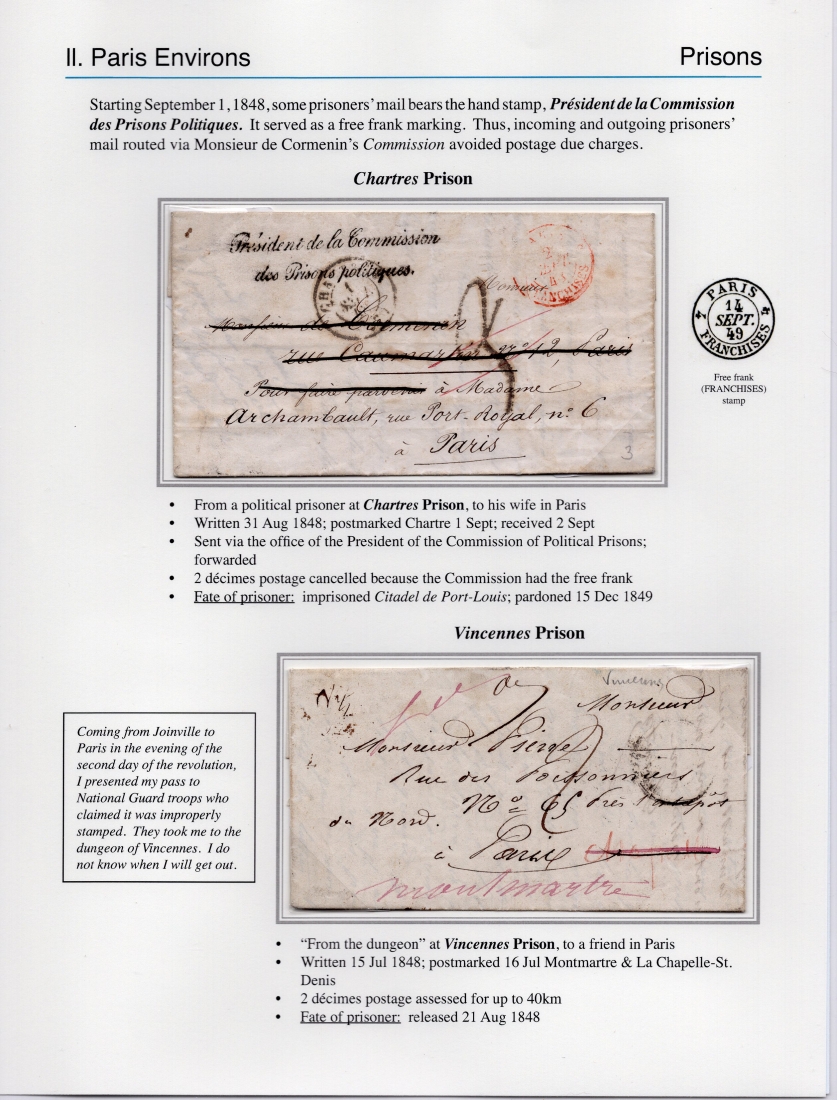 II. Paris Environs
Prisons
Starting September 1, 1848, some prisoners' mail bears the hand stamp, Président de la Commission
des Prisons Politiques. It served as a free frank marking. Thus, incoming and outgoing prisoners'
mail routed via Monsieur de Cormenin's Commission avoided postage due charges.
Chartres Prison
Président de la Commission
des Prisons politiques.
Monsieur
Monsieur de Cormenin
rue Caumartin nº 12, Paris
Pour faire parvenir à Madame
Archambault, rue Port-Royal, nº 6
à Paris
3
PARIS
14
SEPT.
49
FRANCHISES
Free frank
(FRANCHISES)
stamp
• From a political prisoner at Chartres Prison, to his wife in Paris
• Written 31 Aug 1848; postmarked Chartre 1 Sept; received 2 Sept
• Sent via the office of the President of the Commission of Political Prisons;
forwarded
• 2 décimes postage cancelled because the Commission had the free frank
• Fate of prisoner: imprisoned Citadel de Port-Louis; pardoned 15 Dec 1849
Vincennes Prison
Coming from Joinville to
Paris in the evening of the
second day of the revolution,
I presented my pass to
National Guard troops who
claimed it was improperly
stamped. They took me to the
dungeon of Vincennes. I do
not know when I will get out.
Vincennes
Monsieur
Monsieur
Rue des Poissonniers
Nº 65 Près
du Nord.
à Paris
montmartre
• “From the dungeon” at Vincennes Prison, to a friend in Paris
• Written 15 Jul 1848; postmarked 16 Jul Montmartre & La Chapelle-St.
Denis
• 2 décimes postage assessed for up to 40km
• Fate of prisoner: released 21 Aug 1848